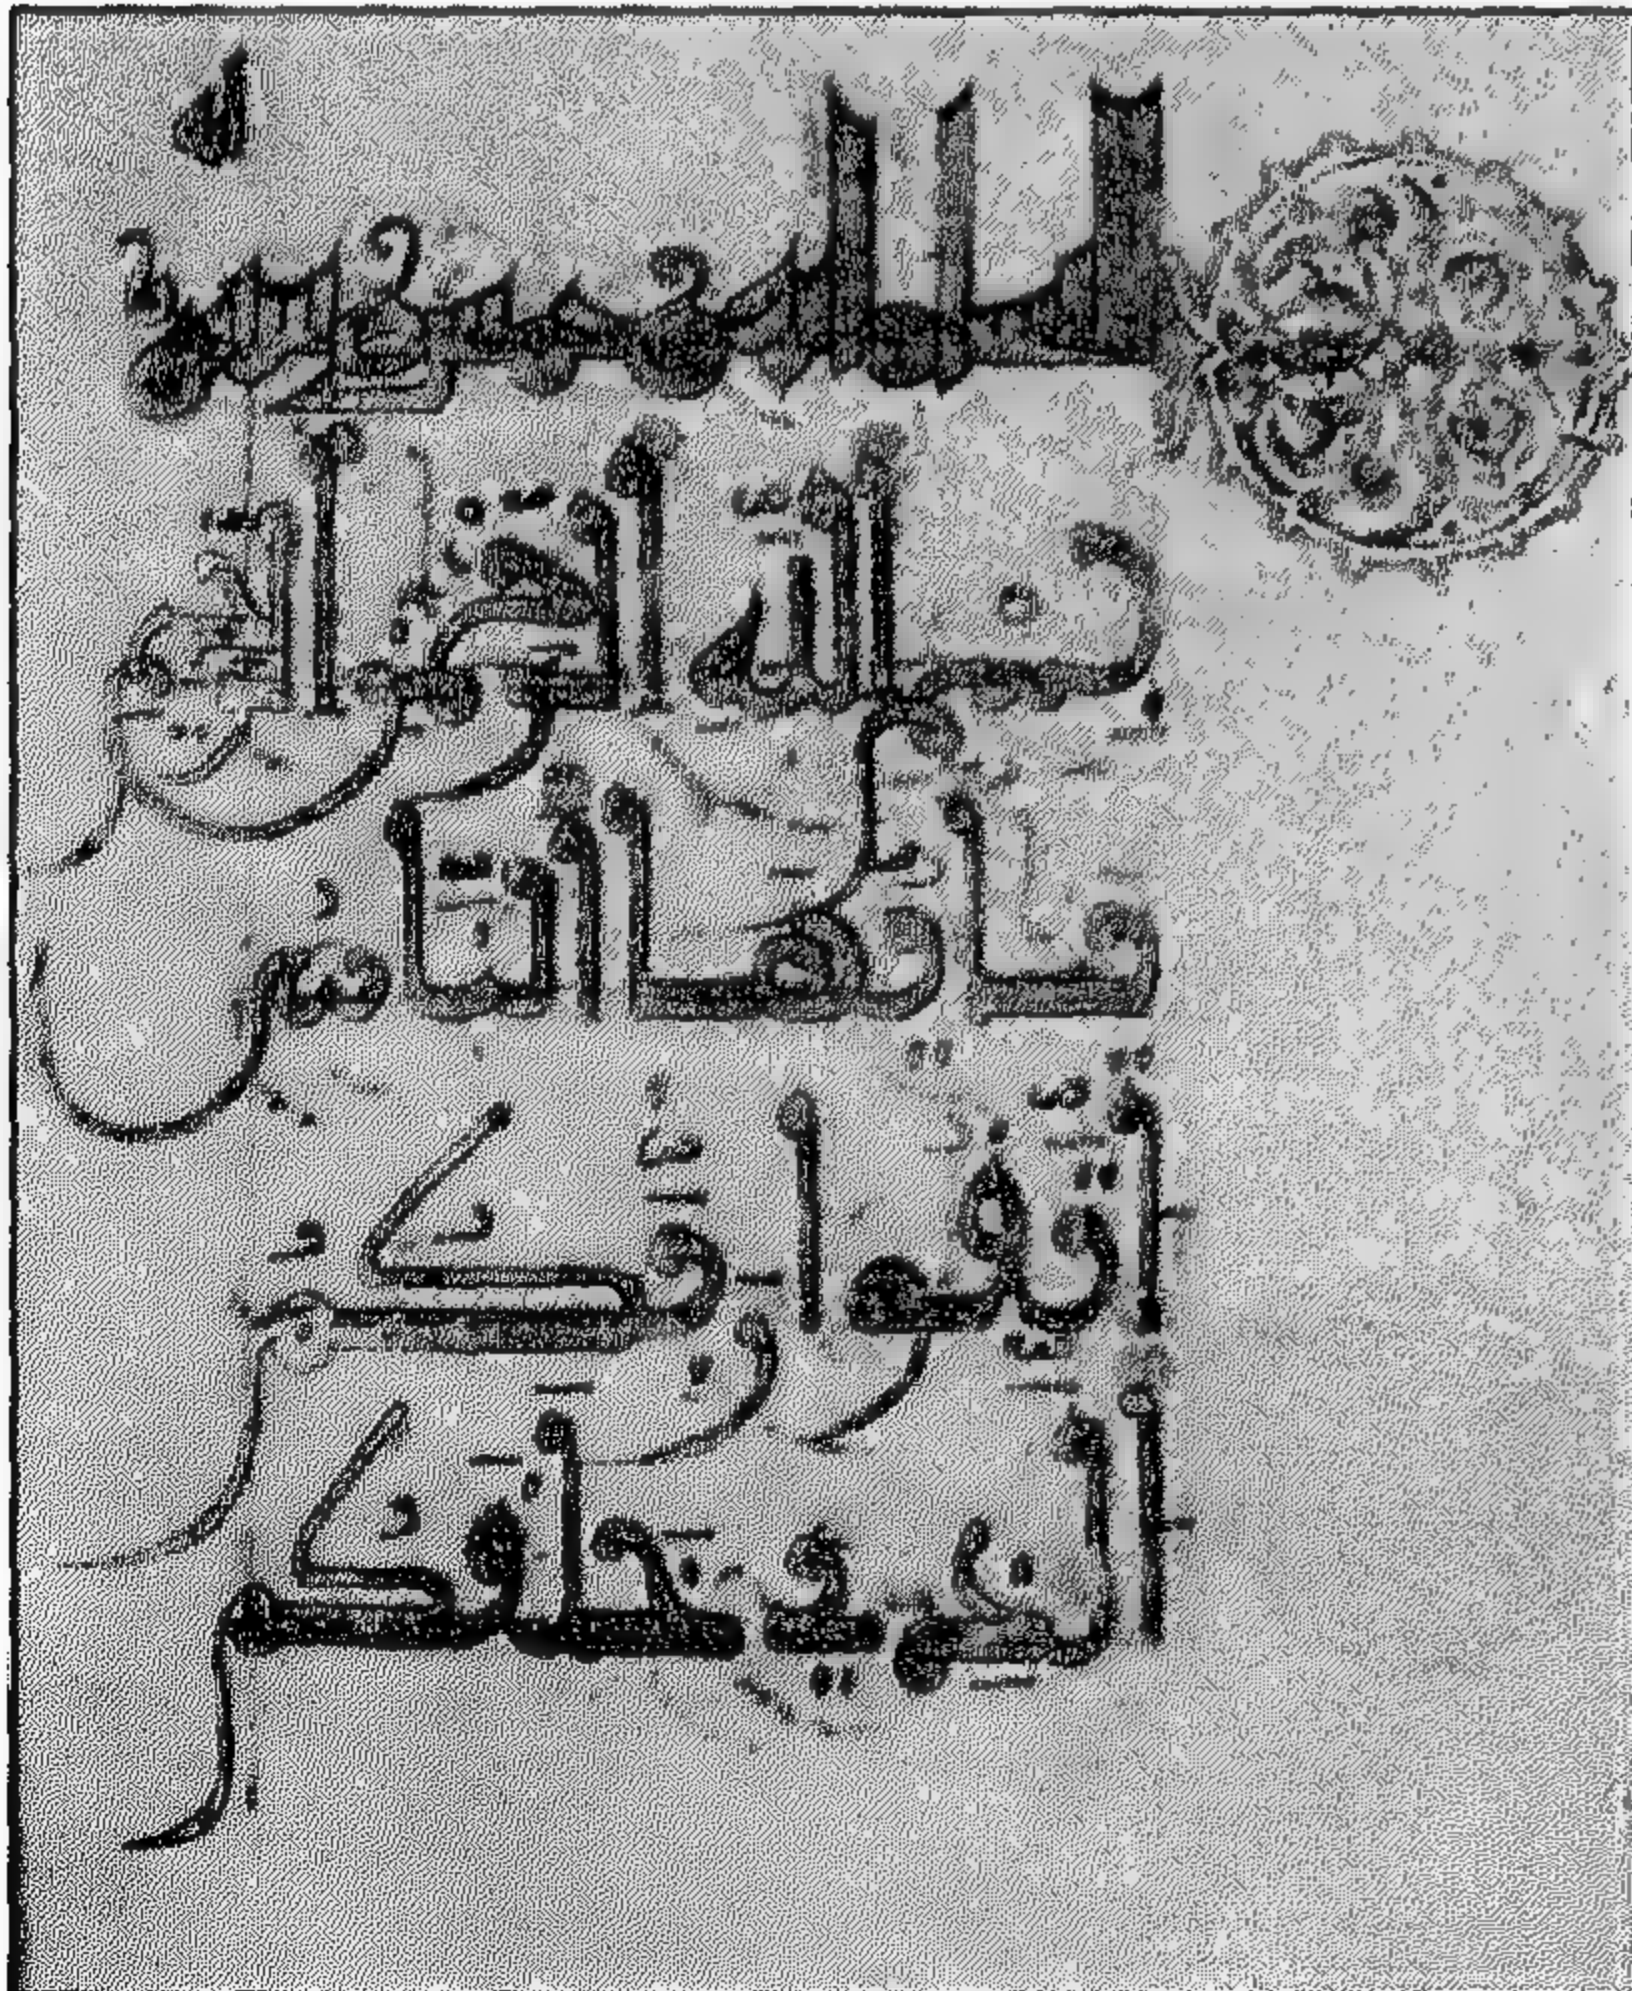 بسم الله الرحمن الرحيم
يا أيها الناس
اتقوا ربكم
الذي خلقكم